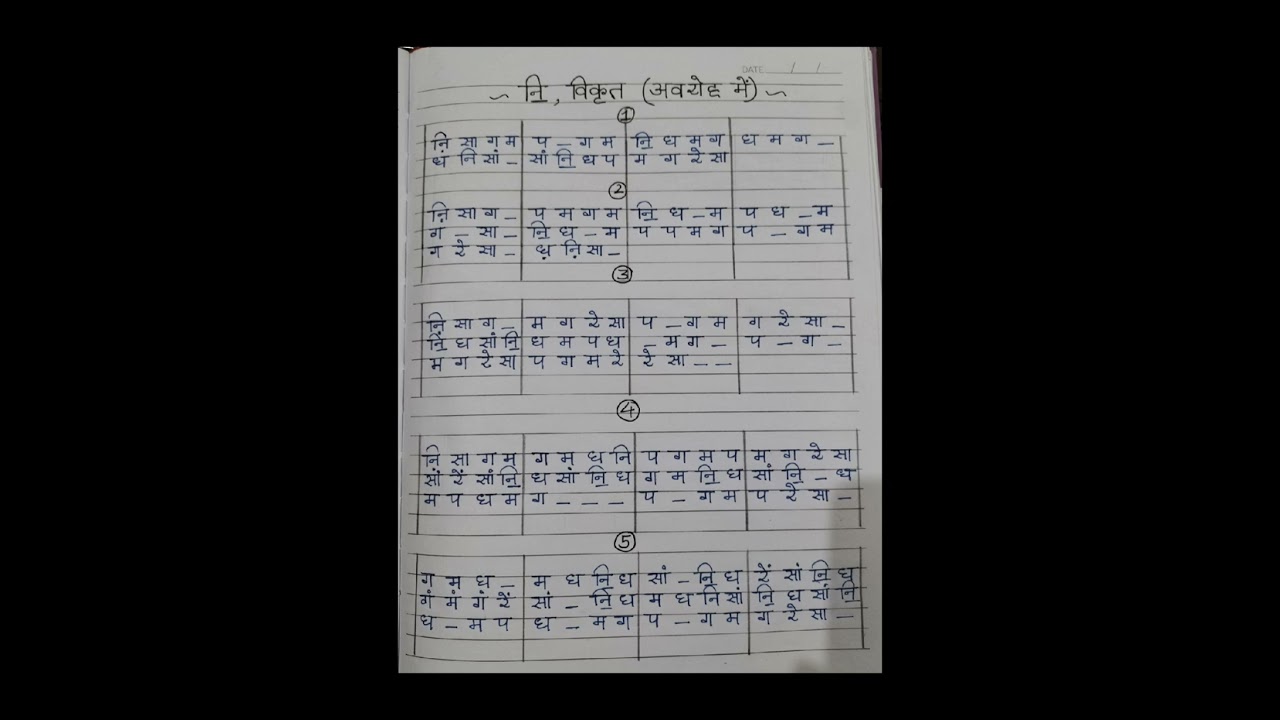 DATE / /
~ नि॒, विकृत (अवरोह में) ~
1
नि़ सा ग म | प – ग म | नि॒ ध म ग | ध म ग –
ध नि सां – | सां नि॒ ध प | म ग रे सा
2
नि़ सा ग – | प म ग म | नि॒ ध – म | प ध – म
ग – सा – | नि॒ ध – म | प प म ग | प – ग म
ग रे सा – | ध़ नि़ सा –
3
नि़ सा ग – | म ग रे सा | प – ग म | ग रे सा –
नि॒ ध सां नि॒ | ध म प ध | – म ग – | प – ग –
म ग रे सा | प ग म रे | रे सा – –
4
नि़ सा ग म | ग म ध नि | प ग म प | म ग रे सा
सां रें सां नि॒ | ध सां नि॒ ध | ग म नि॒ ध | सां नि॒ – ध
म प ध म | ग – – – | प – ग म | प रे सा –
5
ग म ध – | म ध नि॒ ध | सां – नि॒ ध | रें सां नि॒ ध
गं मं गं रें | सां – नि॒ ध | म ध नि सां | नि॒ ध सां नि॒
ध – म प | ध – म ग | प – ग म | ग रे सा –